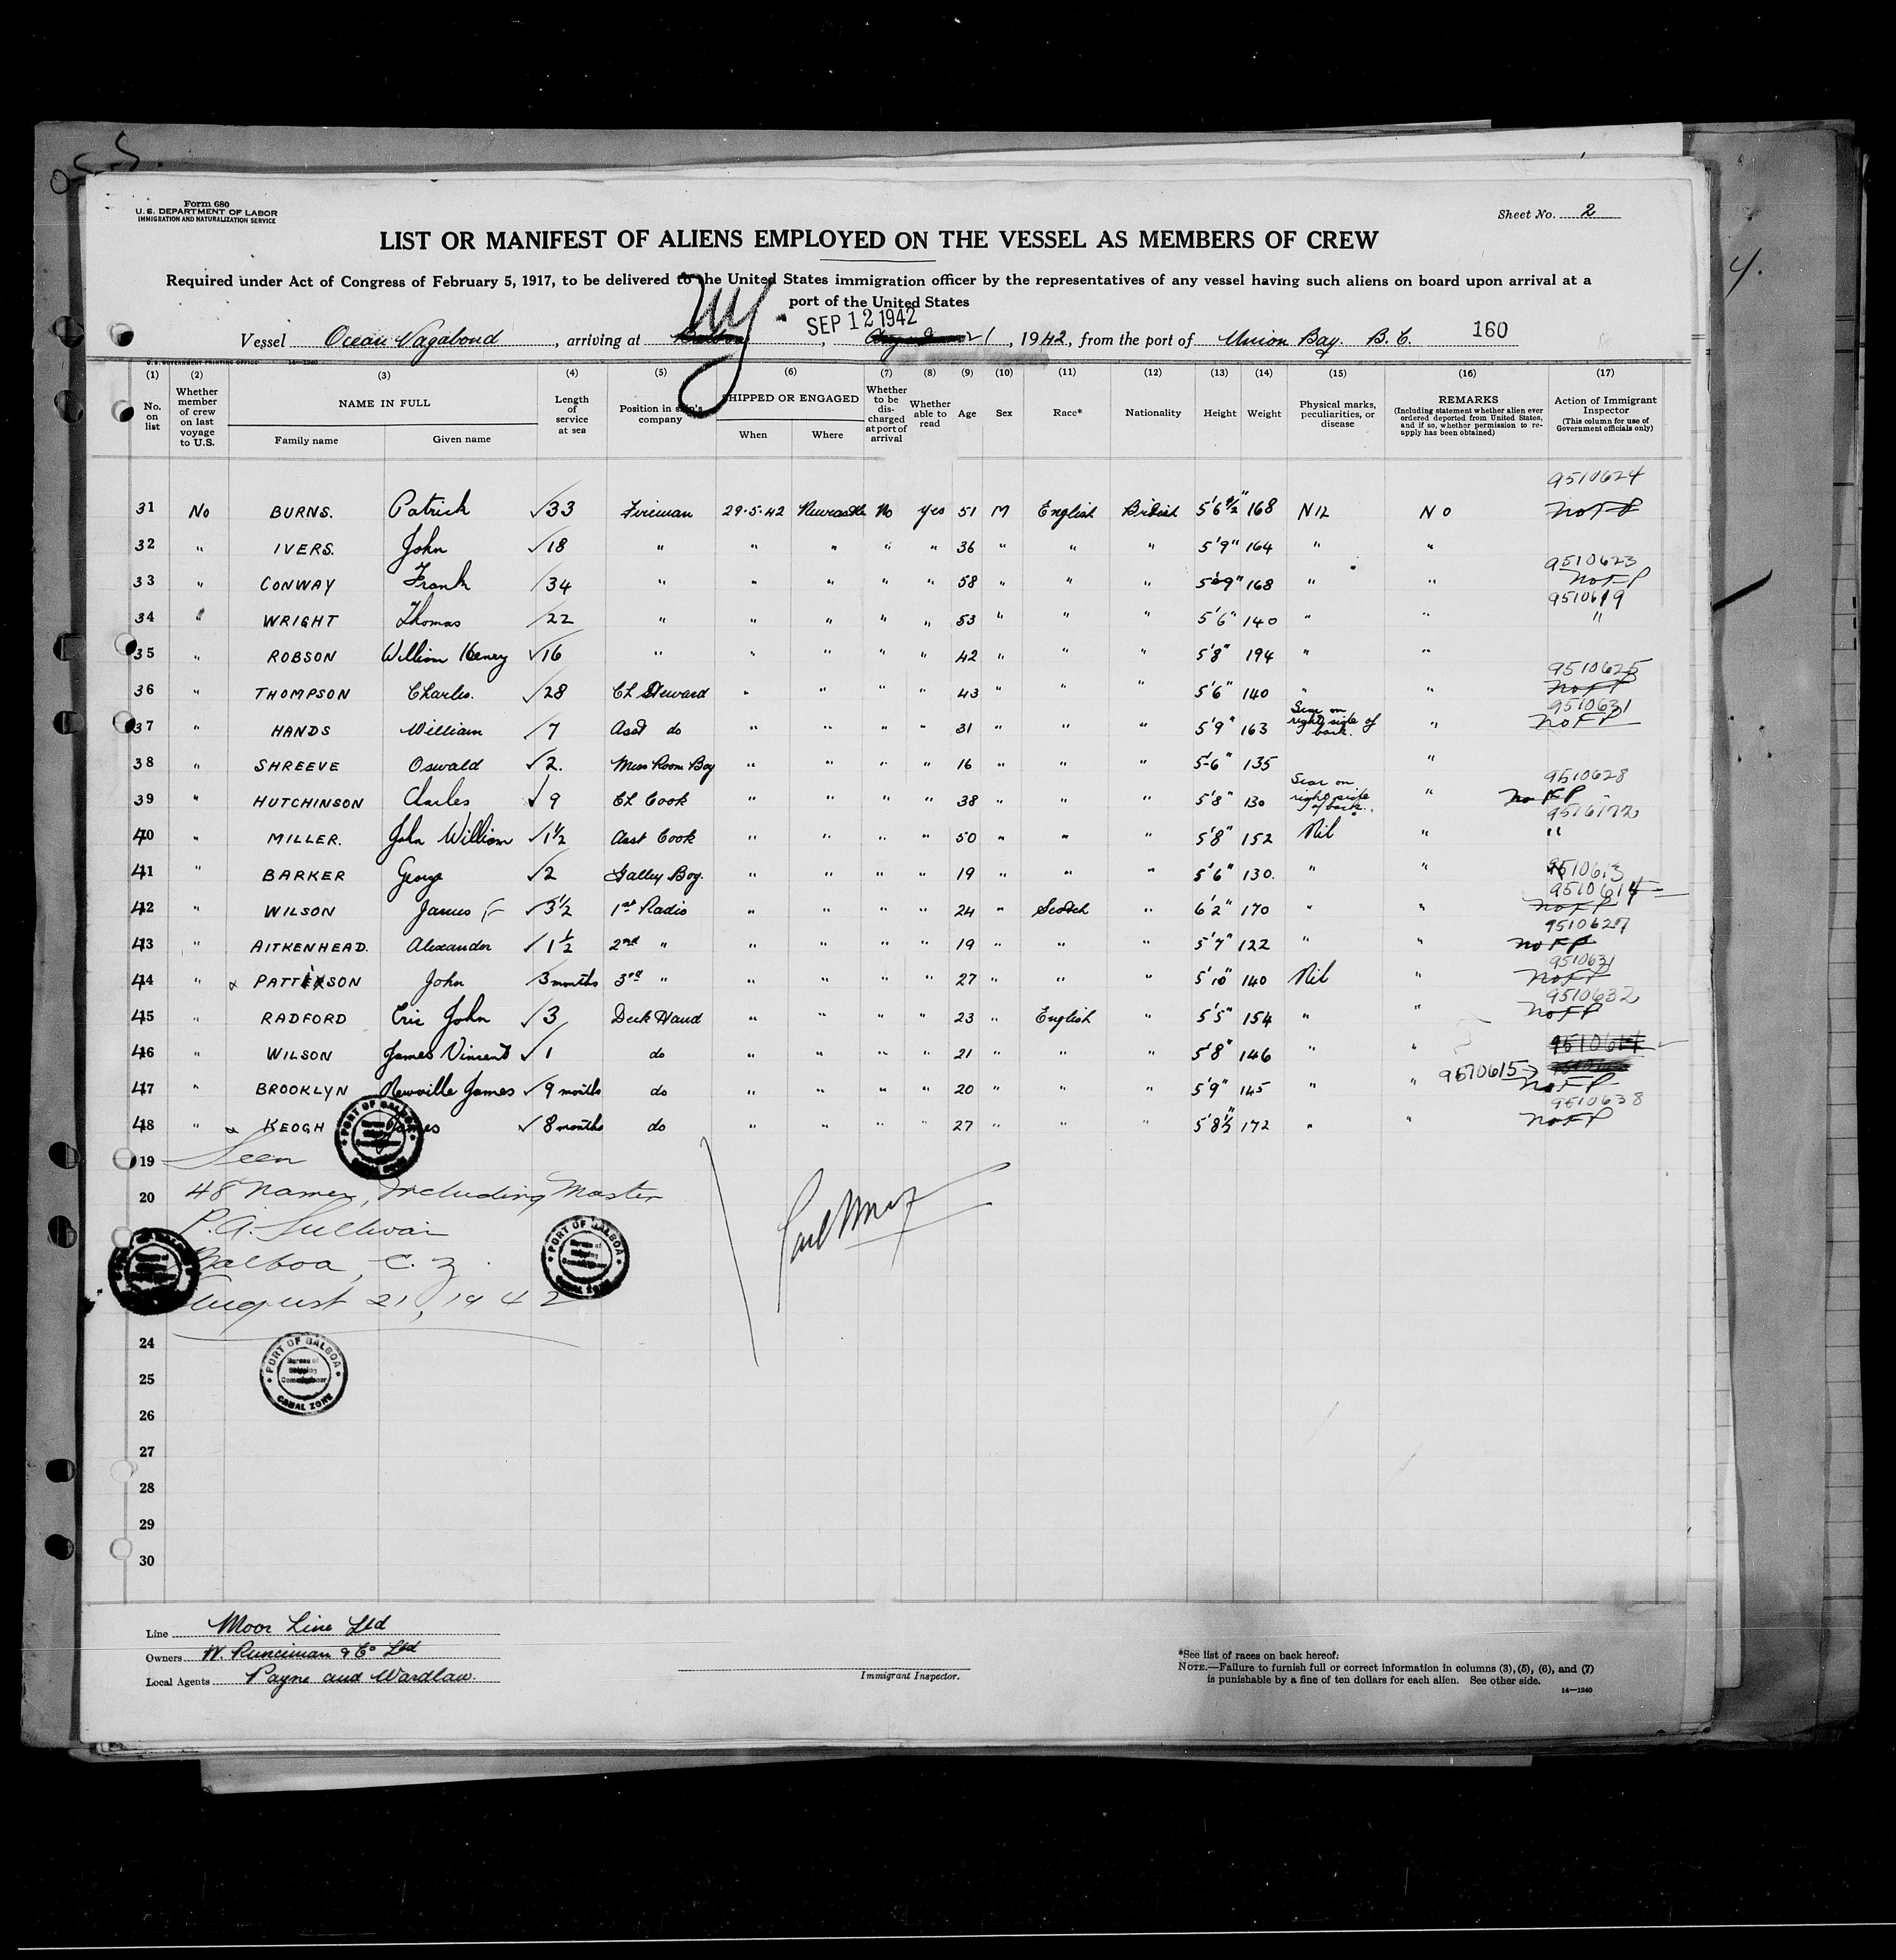 Form 680
U. S. DEPARTMENT OF LABOR
IMMIGRATION AND NATURALIZATION SERVICE
Sheet No. 2
LIST OR MANIFEST OF ALIENS EMPLOYED ON THE VESSEL AS MEMBERS OF CREW
Required under Act of Congress of February 5, 1917, to be delivered to the United States immigration officer by the representatives of any vessel having such aliens on board upon arrival at a
port of the United States
NY. SEP 12 1942
Vessel Ocean Vagabond, arriving at Balboa, 21, 1942, from the port of Union Bay B.C. 160
U. S. GOVERNMENT PRINTING OFFICE 14—1240
(1) (2) (3) (4) (5) (6) (7) (8) (9) (10) (11) (12) (13) (14) (15) (16) (17)
No. on list
Whether member of crew on last voyage to U.S.
NAME IN FULL
Family name Given name
Length of service at sea
Position in ship's company
SHIPPED OR ENGAGED
When Where
Whether to be discharged at port of arrival
Whether able to read
Age Sex Race* Nationality Height Weight
Physical marks, peculiarities, or disease
REMARKS
(Including statement whether alien ever ordered deported from United States, and if so, whether permission to reapply has been obtained)
Action of Immigrant Inspector
(This column for use of Government officials only)
9510624
31 No BURNS. Patrick √33 Fireman 29·5·42 Newcastle No yes 51 M English British 5'6½" 168 NIL NO No FP
32 " IVERS. John √18 " " " " " 36 " " " 5'9" 164 " "
9510623
33 " CONWAY Frank /34 " " " " " 58 " " " 5'9" 168 " " No FP
9510619
34 " WRIGHT Thomas /22 " " " " " 53 " " " 5'6" 140 " " "
35 " ROBSON William Henry √16 " " " " " 42 " " " 5'8" 194 " "
9510625
36 " THOMPSON Charles. √28 Ch Steward " " " " 43 " " " 5'6" 140 " " No FP
9510631
37 " HANDS William /7 Asst do " " " " 31 " " " 5'9" 163 Scar on right side of back. " No FP
38 " SHREEVE Oswald √2. Mess Room Boy " " " " 16 " " " 5'6" 135 "
9510628
39 " HUTCHINSON Charles √9 Ch Cook " " " " 38 " " " 5'8" 130 Scar on right side of back. " No FP
40 " MILLER. John William √1½ Asst Cook " " " " 50 " " " 5'8" 152 Nil " "
9510613
41 " BARKER George √2 Galley Boy. " " " " 19 " " " 5'6" 130. " "
9510614
42 " WILSON James F √3½ 1st Radio " " " " 24 " Scotch " 6'2" 170 " " No FP
9510627
43 " AITKENHEAD. Alexander √1½ 2nd " " " " " 19 " " " 5'7" 122 " " No FP
9510631
44 " x PATTIXSON John /3 months 3rd " " " " " 27 " " " 5'10" 140 Nil " No FP
9510632
45 " RADFORD Eric John √3 Deck Hand " " " " 23 " English " 5'5" 154 " " No FP
46 " WILSON James Vincent √1 do " " " " 21 " " " 5'8" 146 " "
9510615
47 " BROOKLYN Newville James √9 months do " " " " 20 " " " 5'9" 145 " " No FP
9510638
48 " x KEOGH James √8 months do " " " " 27 " " " 5'8½" 172 " " No FP
19 Seen
20 48 names, including Master
P. A. Sullivan
Balboa, C. Z.
August 21, 1942
PORT OF BALBOA Bureau of Shipping Commissioner CANAL ZONE
PORT OF BALBOA Bureau of Shipping Commissioner CANAL ZONE
PORT OF BALBOA Bureau of Shipping Commissioner CANAL ZONE
24
25
26
27
28
29
30
Line Moor Line Ltd
Owners W. Runciman & Co Ltd
Local Agents Payne and Wardlaw.
Immigrant Inspector.
*See list of races on back hereof.
NOTE.—Failure to furnish full or correct information in columns (3), (5), (6), and (7)
is punishable by a fine of ten dollars for each alien. See other side.
14—1240